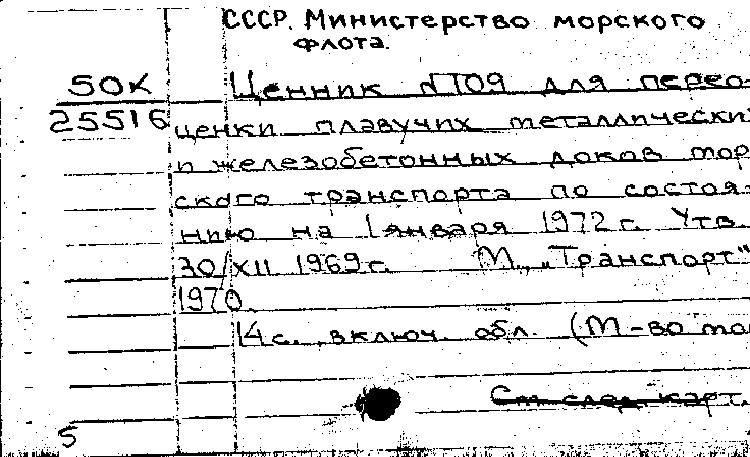 СССР. Министерство морского
флота.
50К Ценник №109 для перео-
25516 ценки плавучих металлически
и железобетонных доков мор
ского транспорта по состоя-
нию на 1 января 1972 г. Утв.
30/XII 1969 г. М., „Транспорт"
1970.
14 с., включ. обл. (М-во мо
См. след. карт.
5